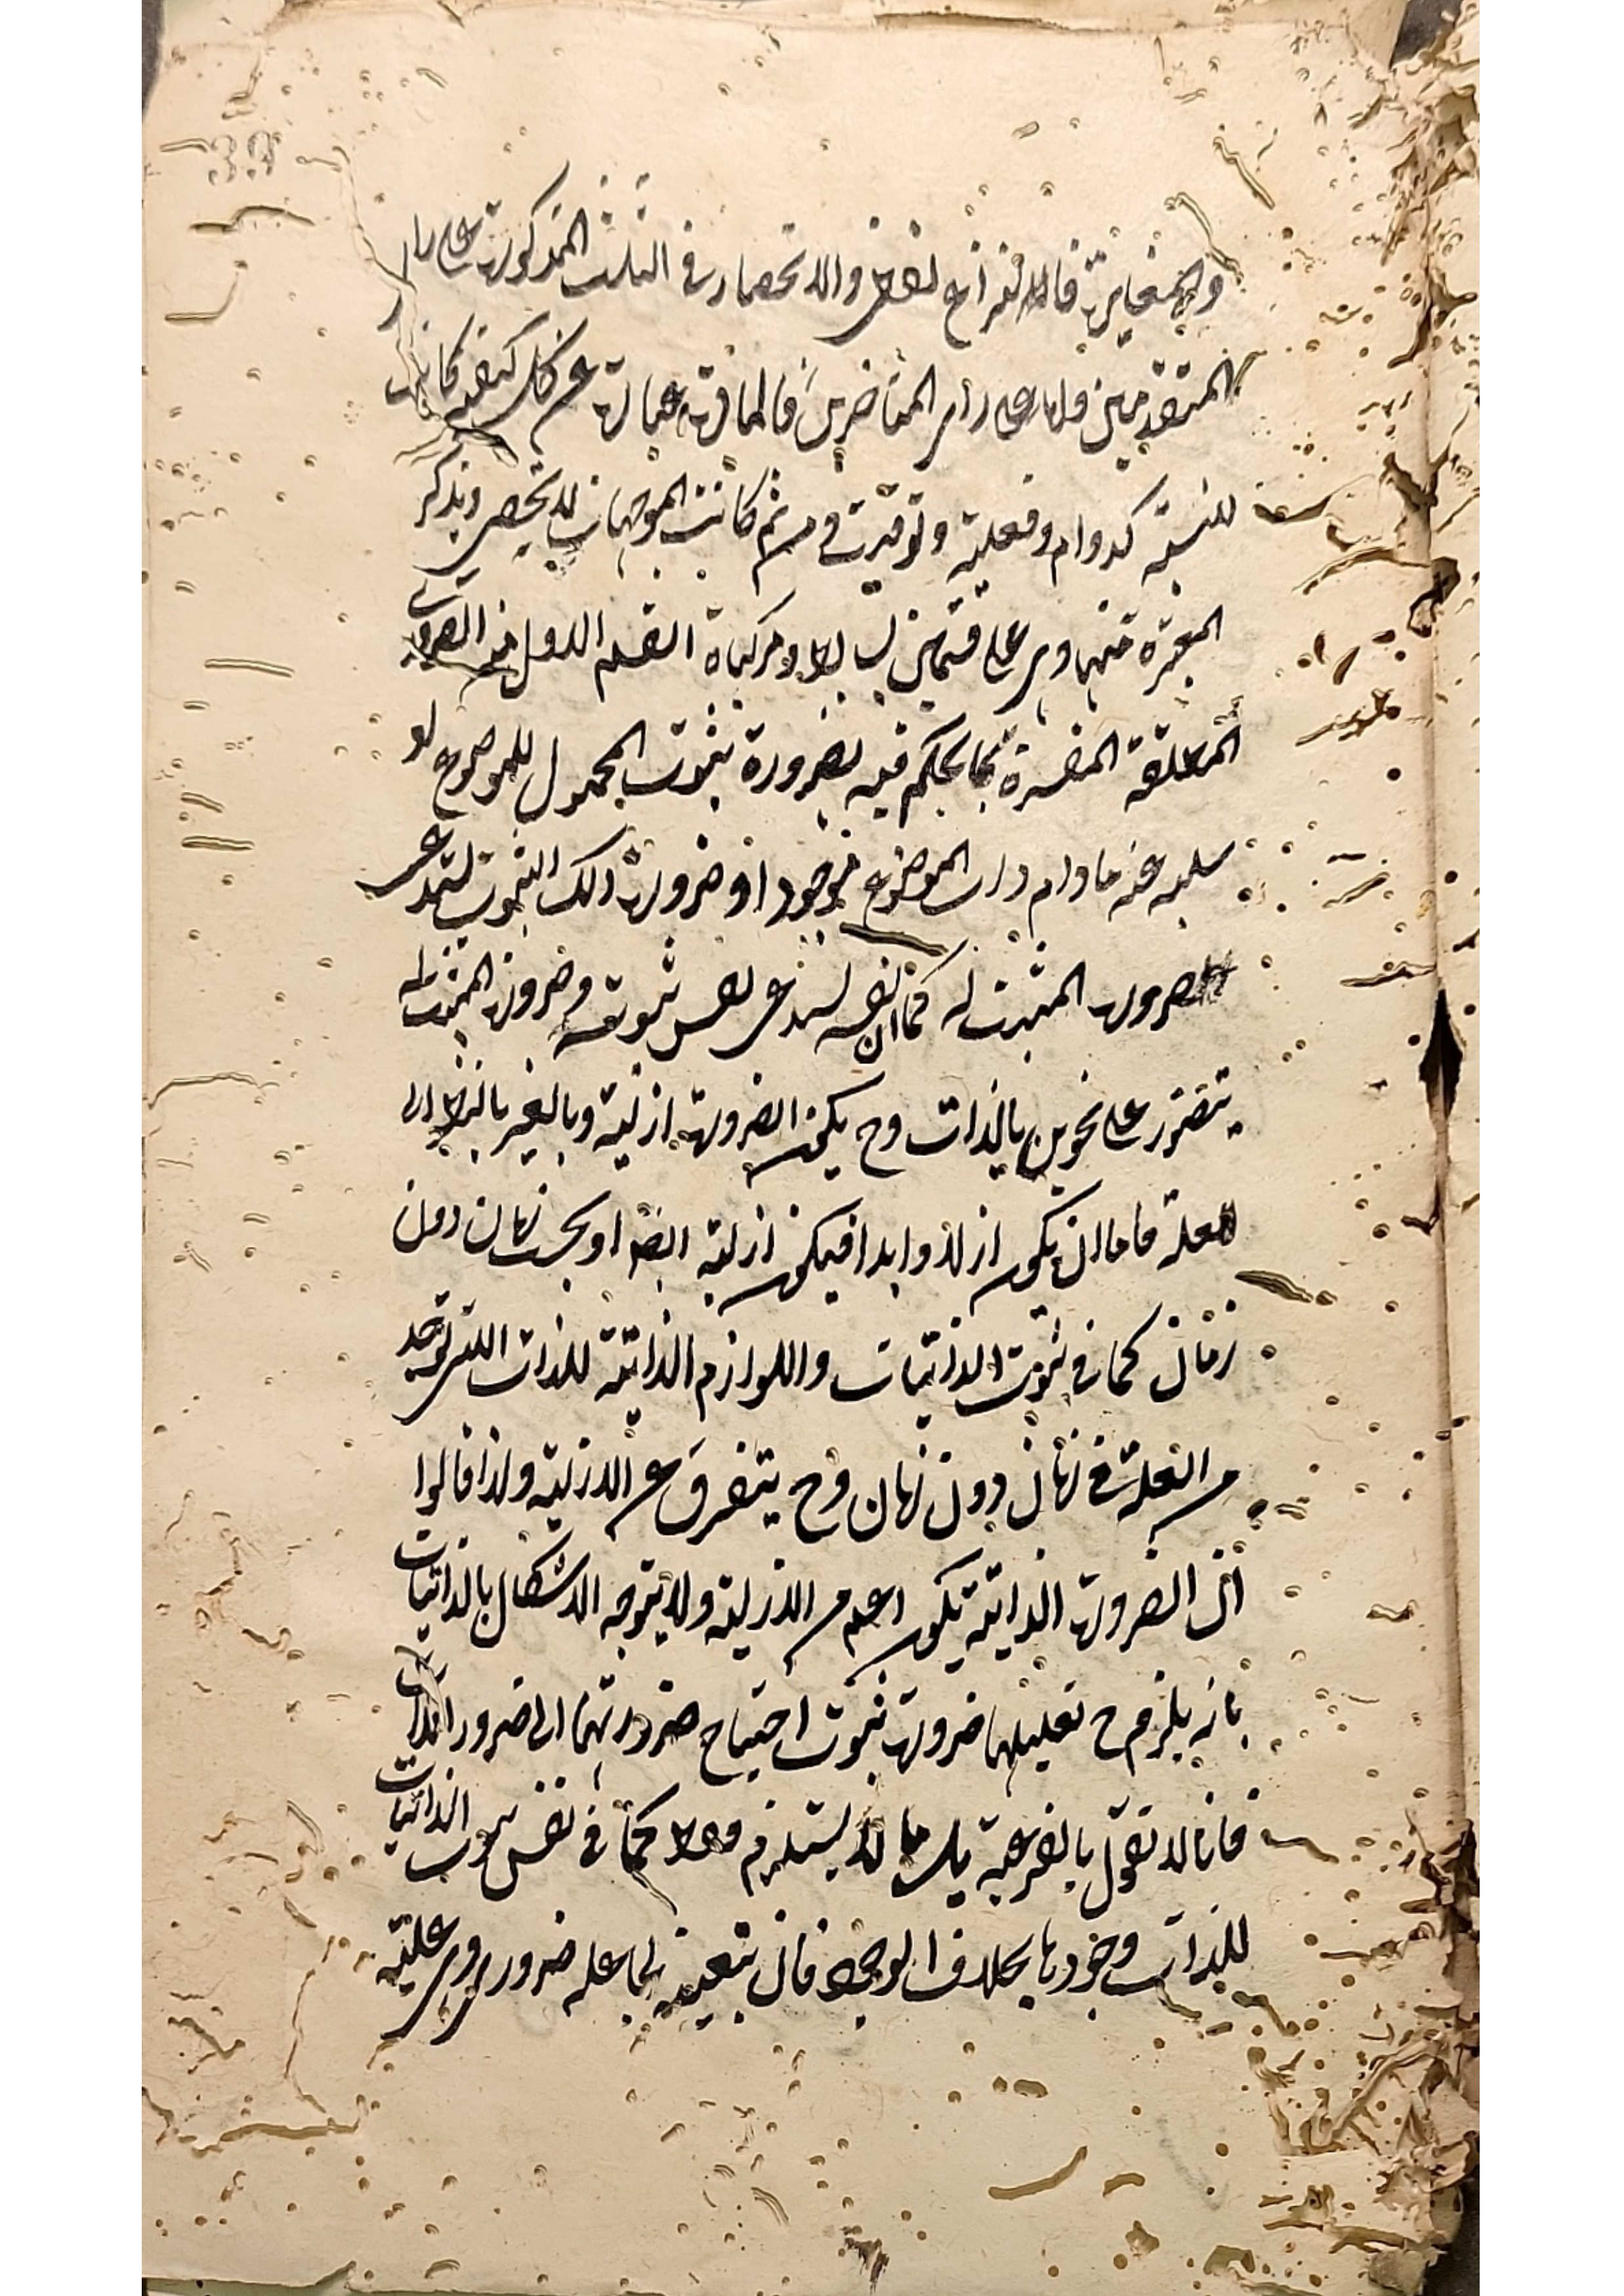 والمغايرة فالنزاع لفظي والانحصار في الثلث المذكورة على راي
المتقدمين واما على راي المتأخرين فالمادة عبارة عن كل كيفية كانت
للنسبة كدوام وفعلية وتوقيت ومن ثم كانت الموجهات لا تحصى ويذكر
المعتبرة منها وهي على قسمين بسائط ومركبات القسم الاول منها الضرورية
المطلقة المفسرة بما يحكم فيه بضرورة ثبوت المحمول للموضوع او
سلبه عنه ما دام ذات الموضوع موجودا وضرورة ذلك الثبوت يستدعي
ضرورة المثبت له كما ان نفسه يستدعي نفس ثبوته وضرورة المثبت له
يتصور على نحوين بالذات وح يكون الضرورة ازلية وبالغير بالنظر الى
العلة فاما ان يكون ازلا وابدا فيكون ازلية ايضا او بحسب زمان دون
زمان كما في ثبوت الذاتيات واللوازم الذاتية للذات التي توجد
من العلة في زمان دون زمان وح يتفرق عن الازلية ولذا قالوا
ان الضرورة الذاتية يكون اعم من الازلية ولا يتوجه الاشكال بالذاتيات
بانه يلزم ح تعليلها ضرورة ثبوت احتياج ضرورتها الى ضرورة الذات
فانا لا نقول بالفرعية بل بالاستلزام فقط كما في نفس ثبوت الذاتيات
للذات وجودها بخلاف الوجود فان بتعينه لما علة ضروري وهي علية